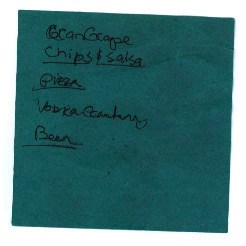 CranGrape
Chips & Salsa
Pizza
Vodka Cranberry
Beer